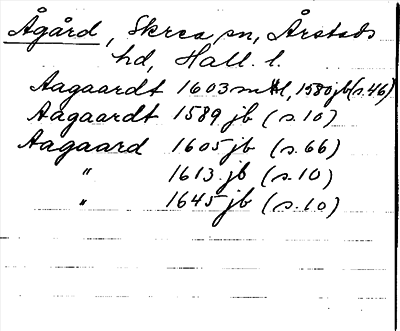 Ågård, Skrea sn, Årstads
hd, Hall. l.
Aagaardt 1603 mtl, 1580 jb (s. 46)
Aagaardt 1589 jb (s. 10)
Aagaard 1605 jb (s. 66)
" 1613 jb (s. 10)
" 1645 jb (s. 10)